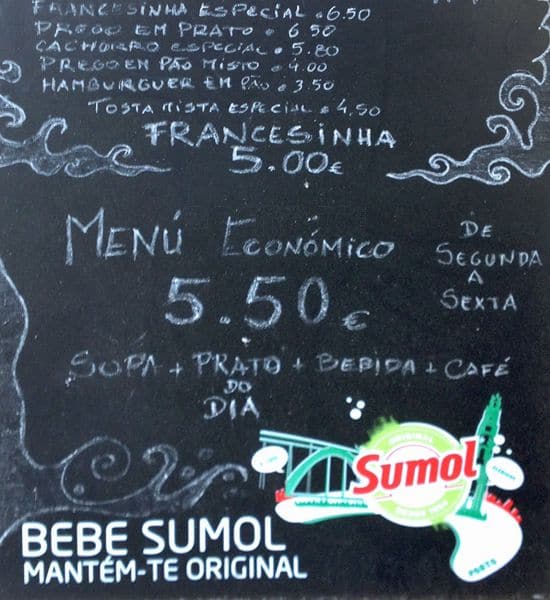 FRANCESINHA ESPECIAL 6.50
PREGO EM PRATO 6 50
CACHORRO ESPECIAL 5.80
PREGO EM PÃO MISTO 4.00
HAMBURGUER EM PÃO 3.50
TOSTA MISTA ESPECIAL 4,50
FRANCESINHA
5.00€
MENÚ ECONÓMICO
5.50€
DE
SEGUNDA
A
SEXTA
SOPA + PRATO + BEBIDA + CAFÉ
DO
DIA
ORIGINAL
Sumol
PORTO
BEBE SUMOL
MANTÉM-TE ORIGINAL